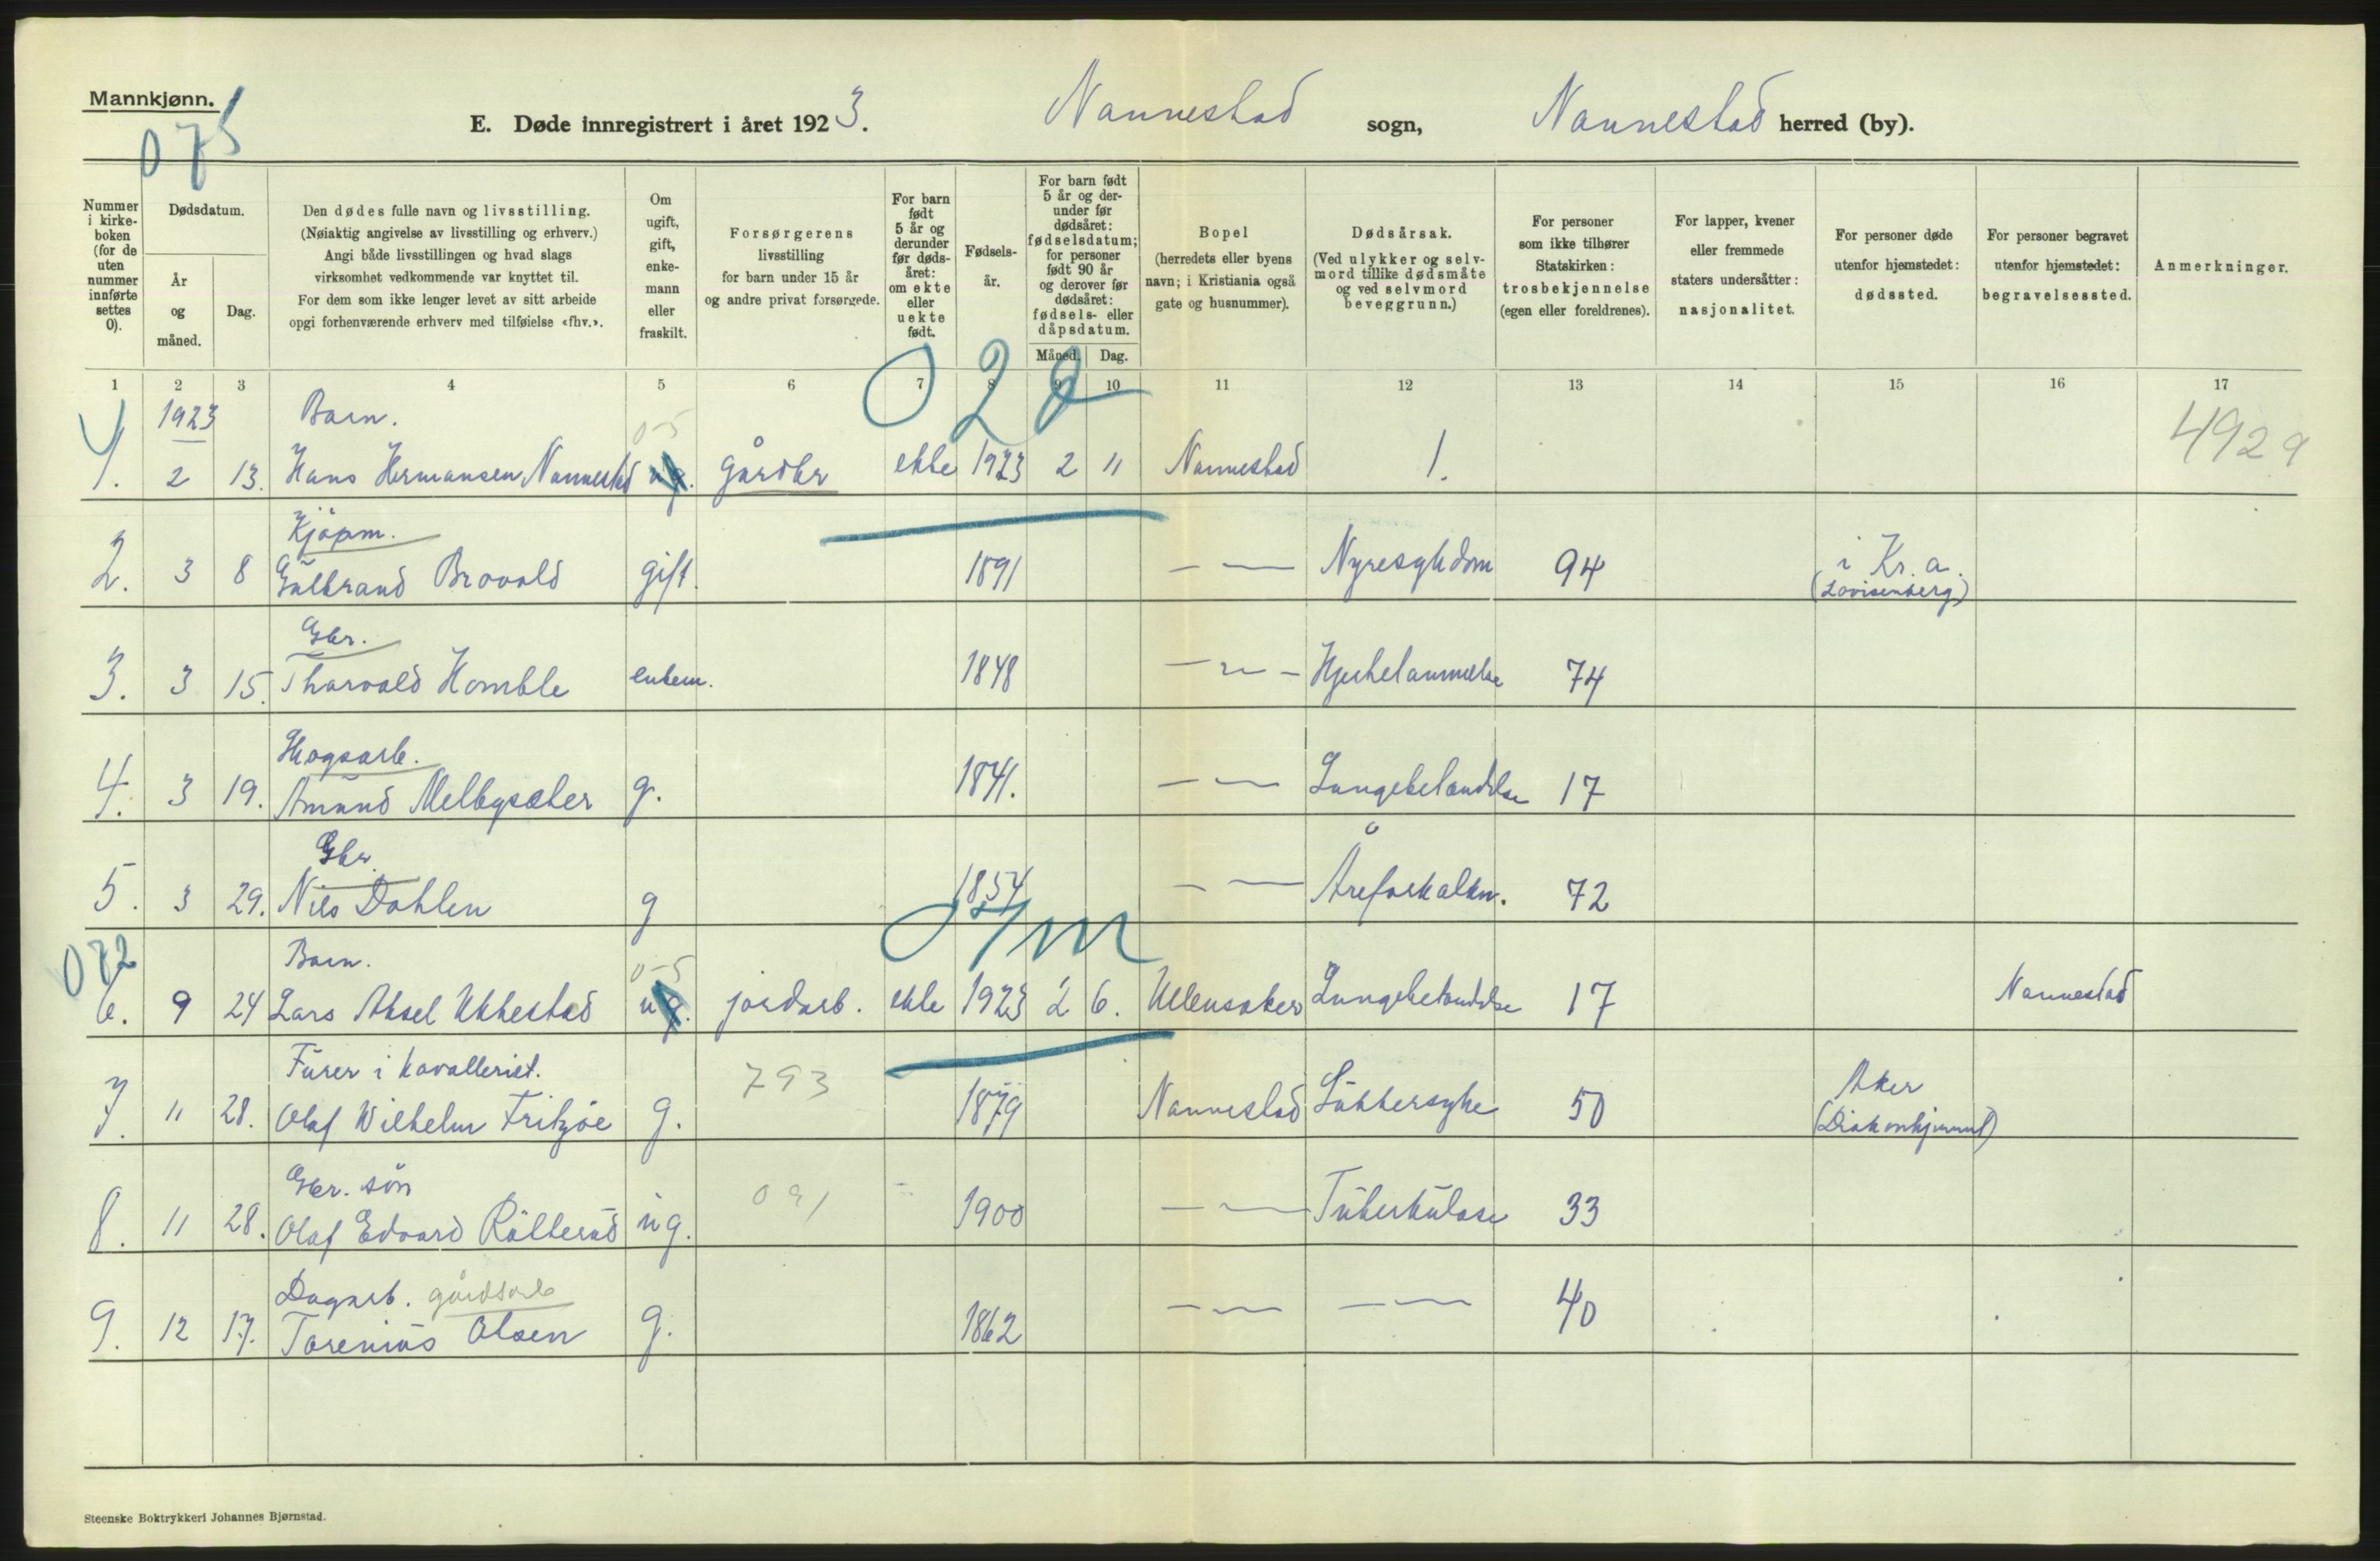 Mannkjønn.
075
E. Døde innregistrert i året 1923.
Nannestad sogn, Nannestad herred (by).
Nummer i kirke- boken (for de uten nummer innførte settes 0).
Dødsdatum.
År og måned.
Dag.
Den dødes fulle navn og livsstilling.
(Nøiaktig angivelse av livsstilling og erhverv.)
Angi både livsstillingen og hvad slags
virksomhet vedkommende var knyttet til.
For dem som ikke lenger levet av sitt arbeide
opgi forhenværende erhverv med tilføielse «fhv.».
Om ugift, gift, enke- mann eller fraskilt.
Forsørgerens livsstilling for barn under 15 år og andre privat forsørgede.
For barn født 5 år og derunder før døds- året: om ekte eller uekte født.
Fødsels- år.
For barn født 5 år og der- under før dødsåret: fødselsdatum; for personer født 90 år og derover før dødsåret: fødsels- eller dåpsdatum.
Måned. Dag.
Bopel (herredets eller byens navn; i Kristiania også gate og husnummer).
Dødsårsak. (Ved ulykker og selv- mord tillike dødsmåte og ved selvmord beveggrunn.)
For personer som ikke tilhører Statskirken: trosbekjennelse (egen eller foreldrenes).
For lapper, kvener eller fremmede staters undersåtter: nasjonalitet.
For personer døde utenfor hjemstedet: dødssted.
For personer begravet utenfor hjemstedet: begravelsessted.
Anmerkninger.
1 2 3 4 5 6 7 8 9 10 11 12 13 14 15 16 17
1923 Barn. 0-5 0 2 d 4929
1. 2 13. Hans Hermansen Nannestad ug. gårdbr ekte 1923 2 11 Nannestad 1.
Kjøpm.
2. 3 8 Gulbrand Brovold gift. 1891 - — Nyresykdom 94 i Kr.a. (Lovisenberg)
Gbr.
3. 3 15. Thorvald Homble enkem. 1848 - " - Hjertelammelse 74
Skogsarb.
4. 3 19. Amund Melbysæter g. 1841. - — Lungebetændelse 17
Gbr.
5. 3 29. Nils Dahlen g 1854 - — Åreforkalkn. 72
072 Barn. 0-5 0 7m
6. 9 24 Lars Aksel Ukkestad ug. jordarb. ekte 1923 2 6. Ullensaker Lungebetændelse 17 Nannestad
Furer i kavalleriet. 793
7. 11 28. Olaf Wilhelm Fritzøe g. 1879 Nannestad Sukkersyke 50 Aker (Diakonhjemmet)
Gbr. søn 091
8. 11 28. Olaf Edvard Rålterud ug. 1900 - — Tuberkulose 33
Dagarb. gårdsarb
9. 12 17. Torenius Olsen g. 1862 - — - — 40
Steenske Boktrykkeri Johannes Bjørnstad.